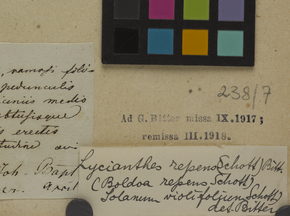 ramosi foli-
pedunculis
medio
erectis
Joh. Bapt
238/7
Ad G. Bitter missa IX.1917;
remissa III.1918.
Lycianthes repens (Schott) Bitt.
(Boldoa repens Schott)
Solanum violifolium Schott)
det. Bitter